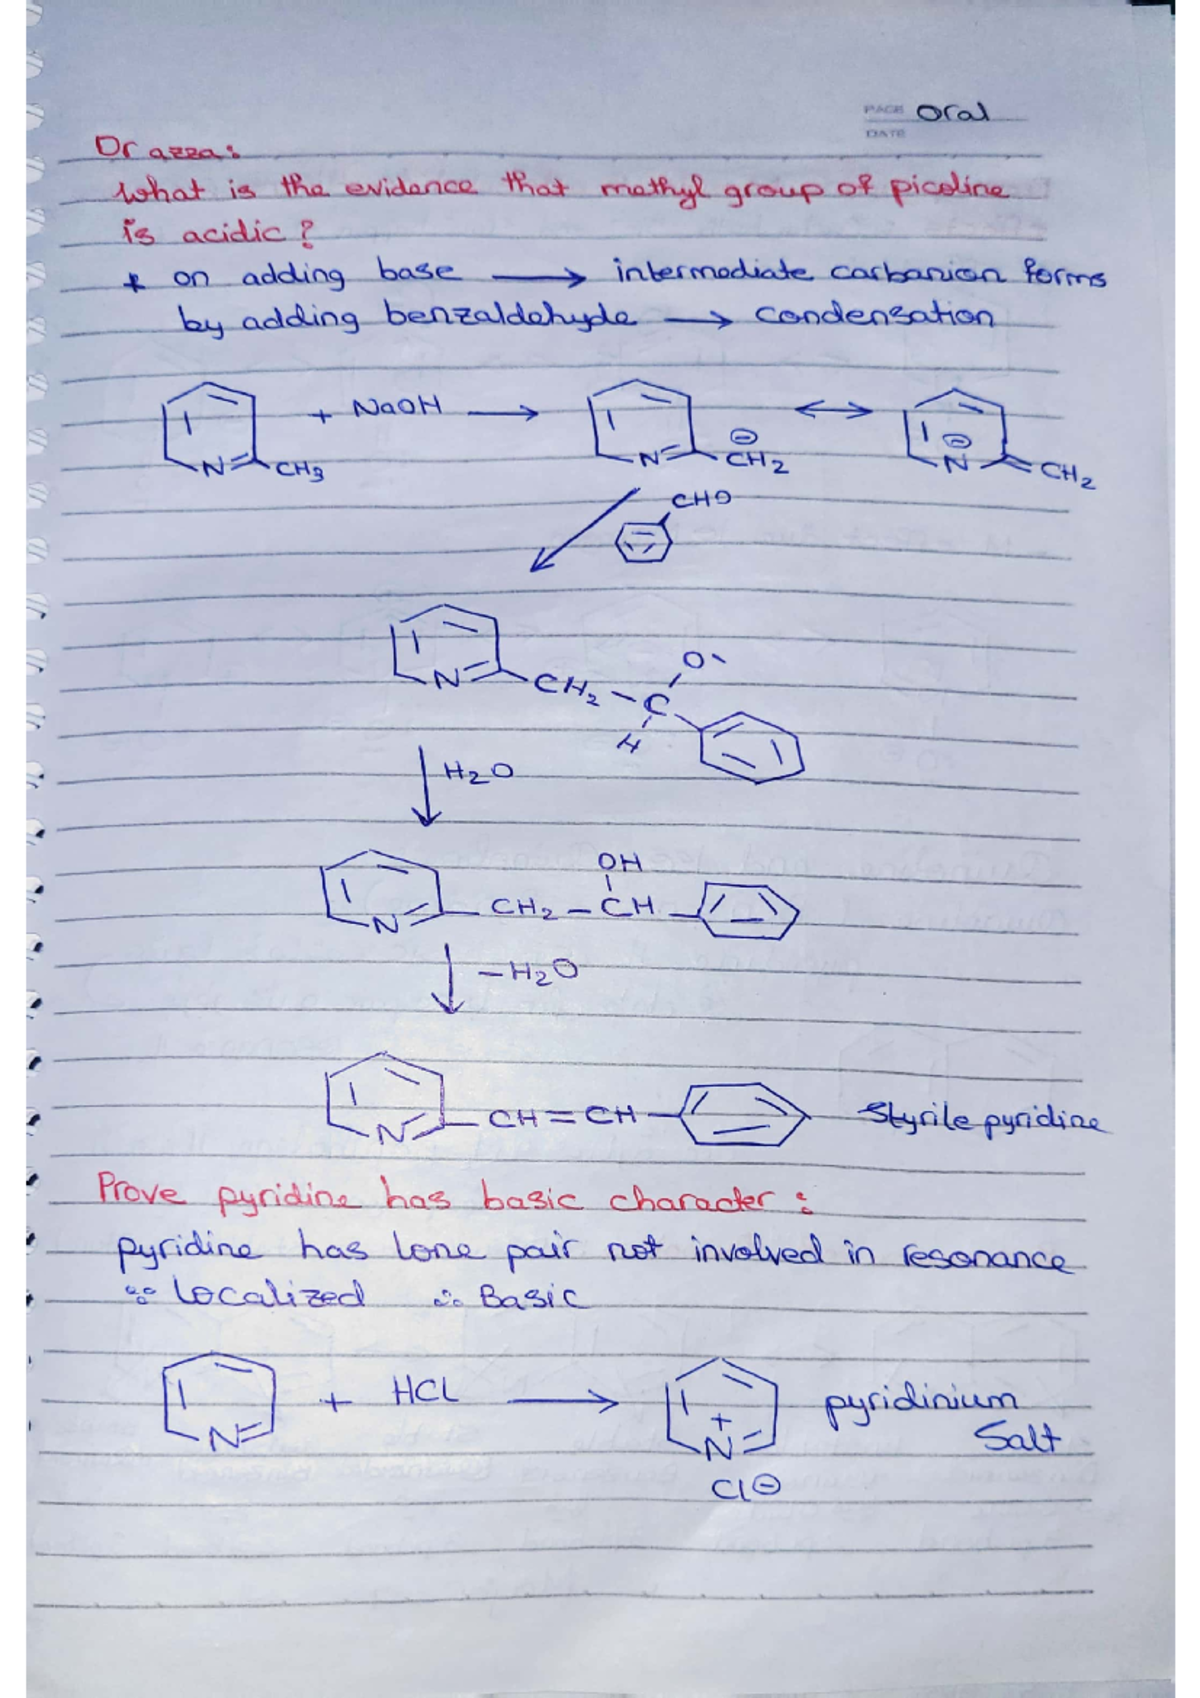 PAGE Oral
DATE
Dr azza:
What is the evidence that methyl group of picoline
is acidic?
* on adding base → intermediate carbanion forms
by adding benzaldehyde → condensation
N CH3 + NaOH → N ⊖ CH2 ↔ ⊖ N CH2
CHO
O-
N CH2 - C
H
H2O
OH
N CH2 - CH
-H2O
N CH=CH Styrile pyridine
Prove pyridine has basic character:
pyridine has lone pair not involved in resonance
∵ Localized ∴ Basic
N + HCL → N+ pyridinium
Salt
Cl⊖